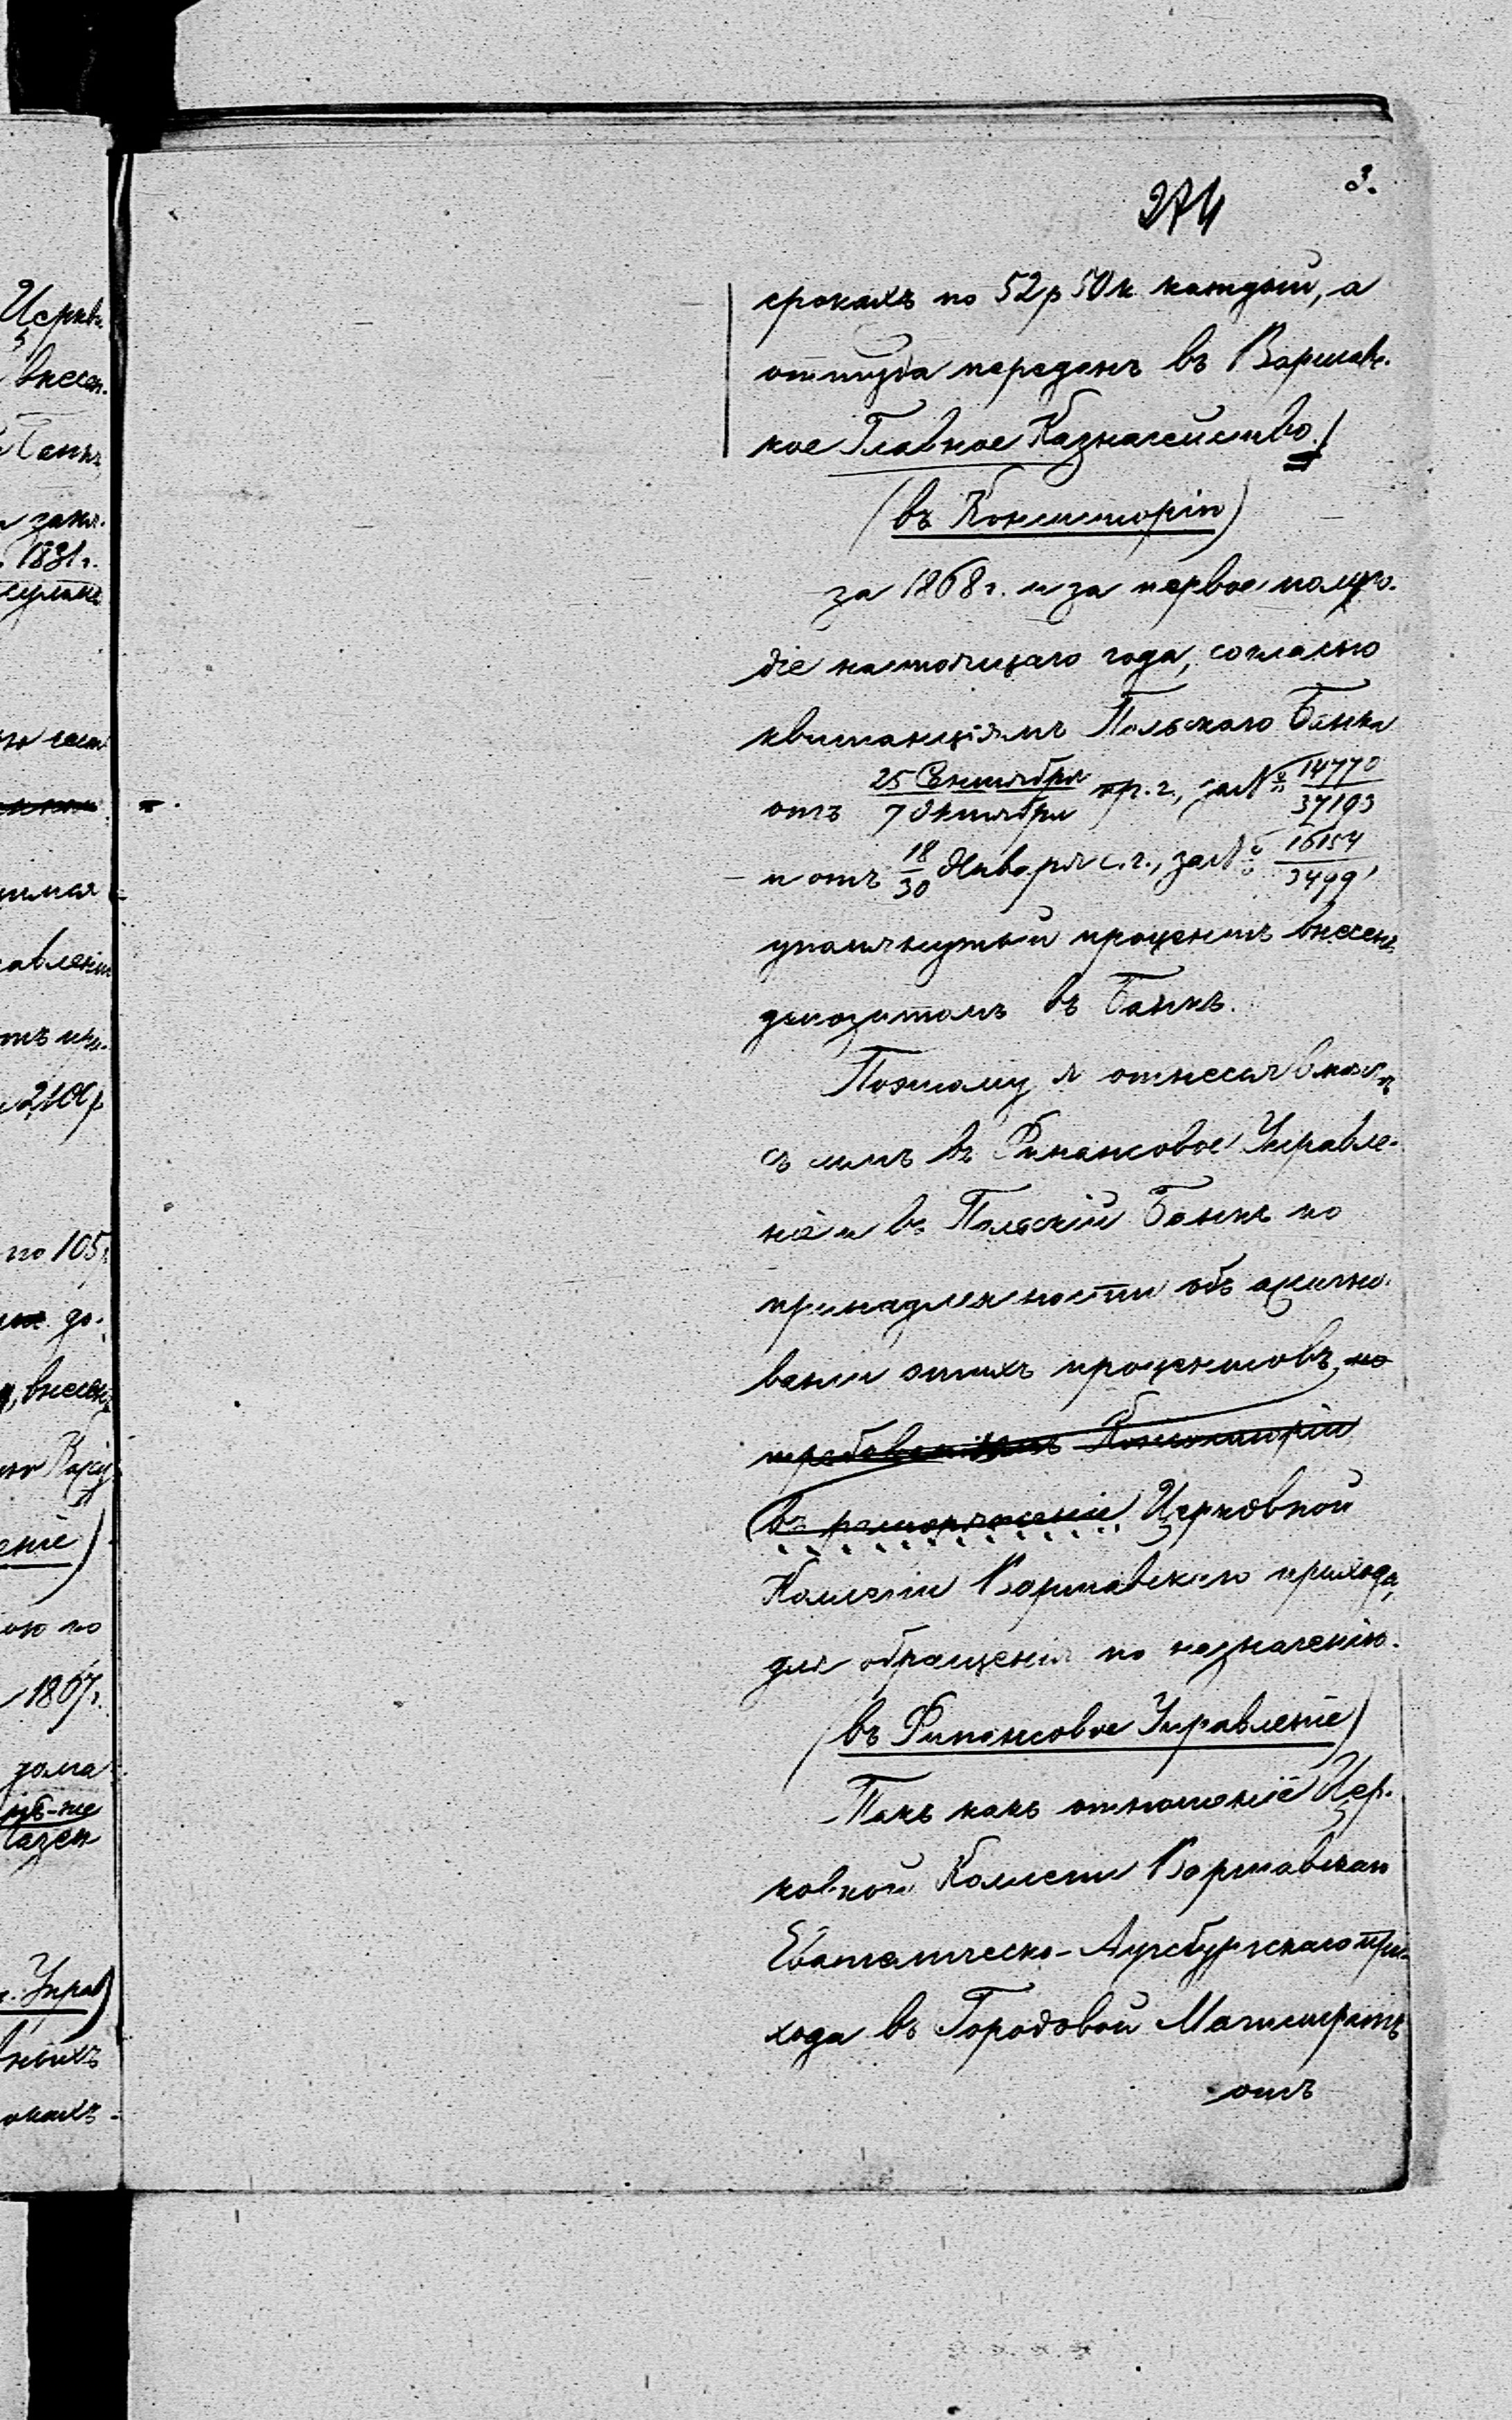 3.
274
срокахъ по 52 р 50 к каждый, а
оттуда переданъ въ Варшавс-
кое Главное Казначейство.
(въ Консисторію)
за 1868 г. и за первое полуго-
діе настоящаго года, согласно
квитанціямъ Польскаго Банка
отъ 25 Сентября / 7 Октября пр. г., за № 14770 / 37193
и отъ 18 / 30 Января с. г., за № 16154 / 3499,
упомянутый процентъ внесенъ
депозитомъ въ Банкъ.
Поэтому я отнесся вмѣстѣ
съ симъ въ Финансовое Управле-
ніе и въ Польскій Банкъ по
принадлежности объ ассигно-
ваніи этихъ процентовъ, по
требованіямъ Консисторіи
въ распоряженіе Церковной
Коллегіи Варшавскаго прихода,
для обращенія по назначенію.
(въ Финансовое Управленіе)
Такъ какъ отношеніе Цер-
ковной Коллегіи Варшавскаго
Евангелическо-Аугсбургскаго при-
хода въ Городовой Магистратъ
отъ
Церкв
внесен.
Банкъ
1831 г.
2100 р
по 105
до-
внесен
еніе)
1867 г.
дома
Казен
Управ)